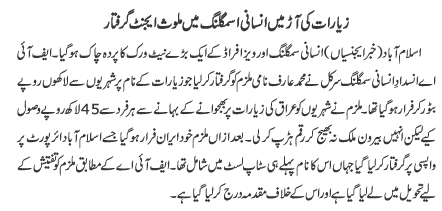 زیارات کی آڑ میں انسانی اسمگلنگ میں ملوث ایجنٹ گرفتار
اسلام آباد (خبر ایجنسیاں) انسانی سمگلنگ اور ویزا فراڈ کے ایک بڑے نیٹ ورک کا پردہ چاک ہو گیا۔ ایف آئی
اے انسداد انسانی سمگلنگ سرکل نے محمد عارف نامی ملزم کو گرفتار کر لیا جو زیارات کے نام پر شہریوں سے لاکھوں روپے
بٹور کر فرار ہو گیا تھا۔ ملزم نے شہریوں کو عراق کی زیارات پر بھجوانے کے بہانے سے ہر فرد سے 45 لاکھ روپے وصول
کیے لیکن انہیں بیرون ملک نہ بھیج کر رقم ہڑپ کر لی۔ بعد ازاں ملزم خود ایران فرار ہو گیا جسے اسلام آباد ائر پورٹ پر
واپسی پر گرفتار کر لیا گیا جہاں اس کا نام پہلے ہی سٹاپ لسٹ میں شامل تھا۔ ایف آئی اے کے مطابق ملزم کو تفتیش کے
لیے تحویل میں لے لیا گیا ہے اور اس کے خلاف مقدمہ درج کر لیا گیا ہے۔